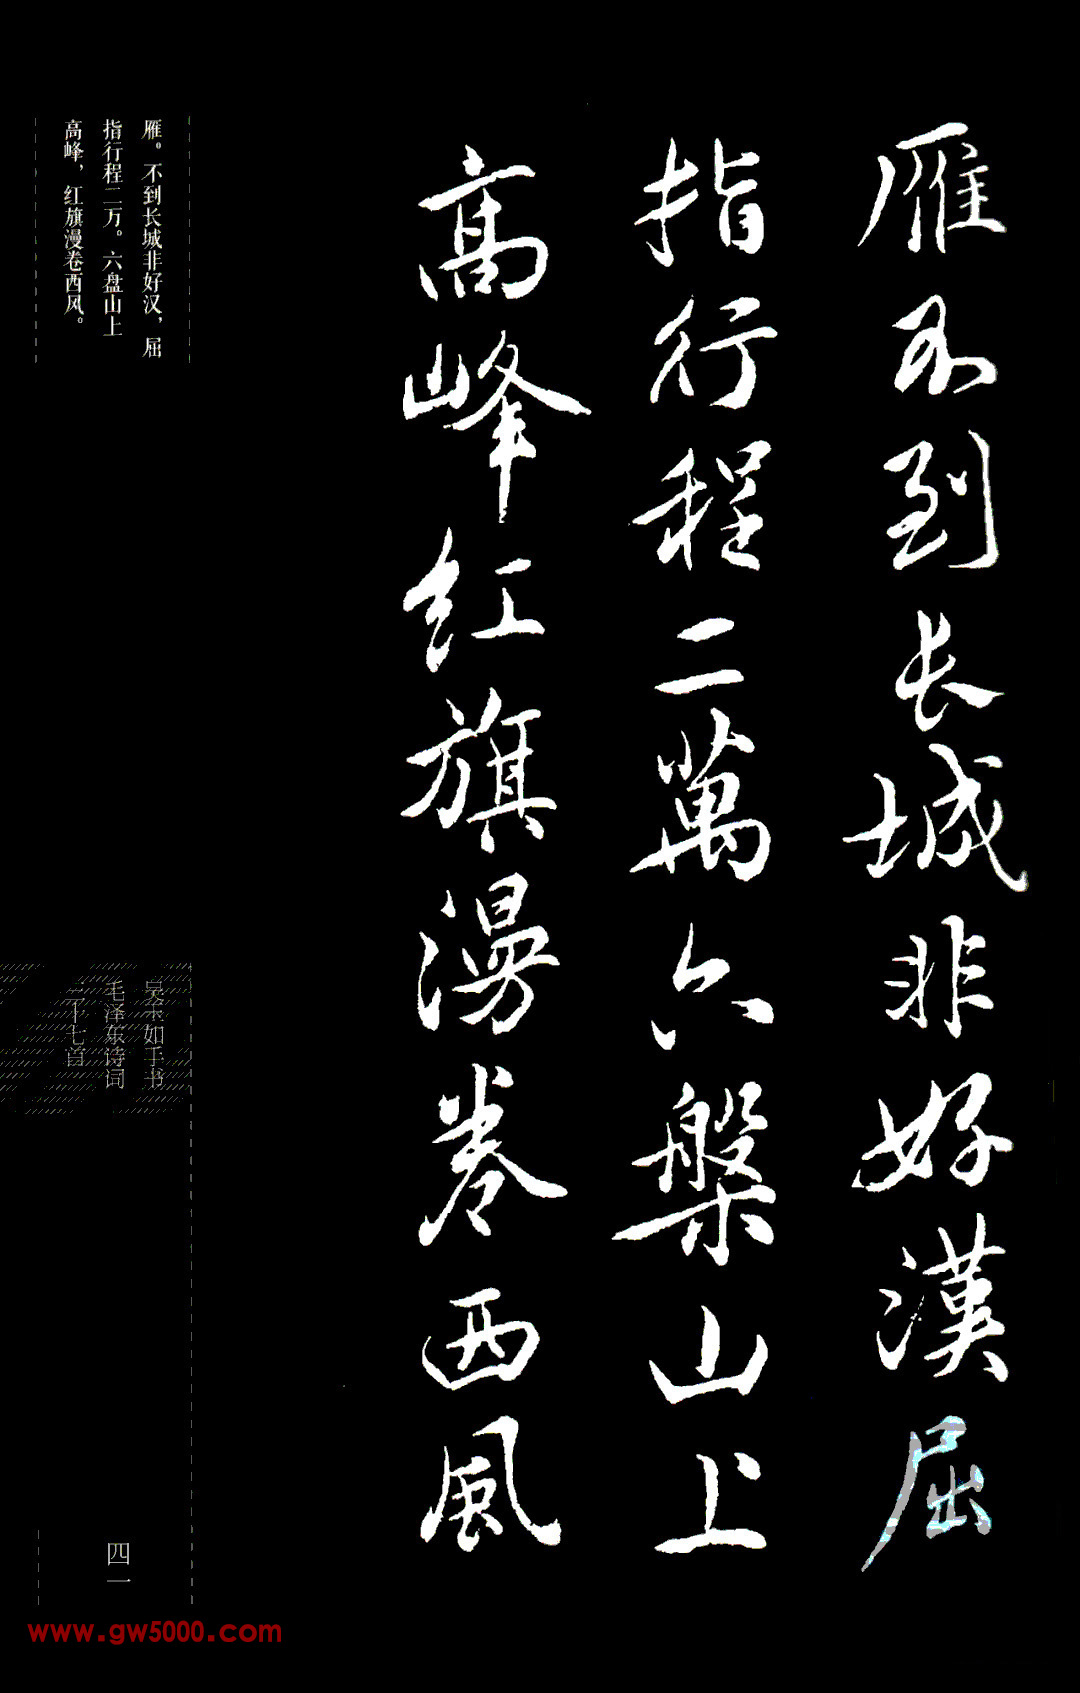 雁不到长城非好漢屈
指行程二萬六槃山上
高峰红旗漫卷西風
雁。不到长城非好汉，屈
指行程二万。六盘山上
高峰，红旗漫卷西风。
吴玉如手书
毛泽东诗词
三十七首
四一
www.gw5000.com